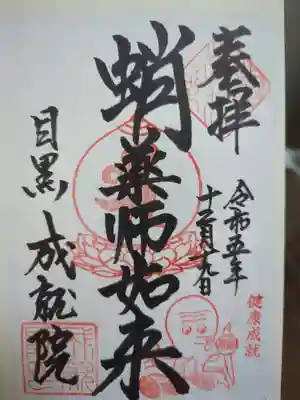 奉拝
令和五年
十一月十九日
蛸薬師如来
目黒 成就院
健康成就